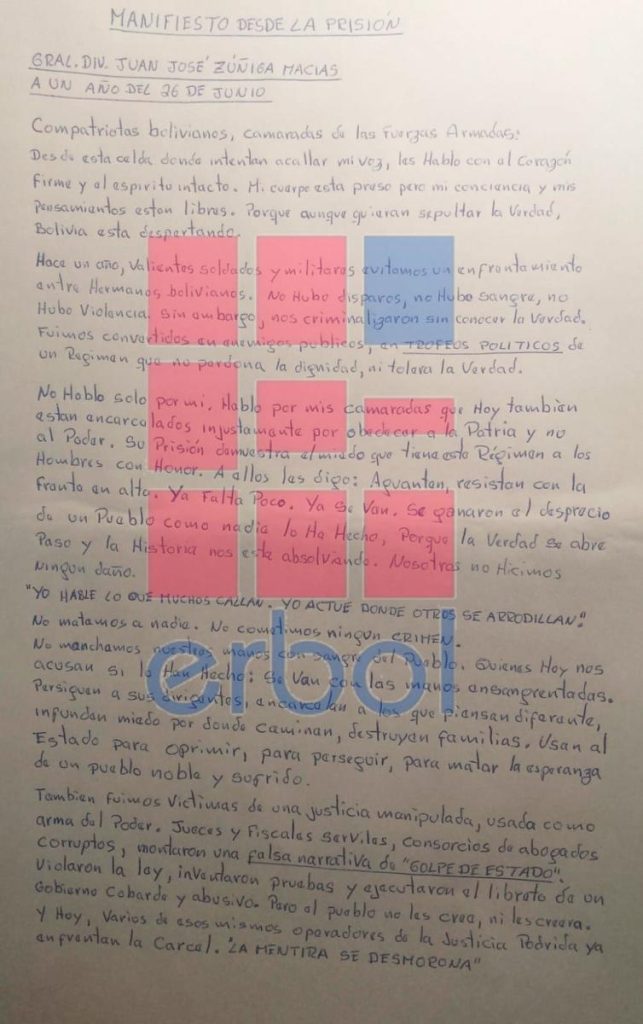 MANIFIESTO DESDE LA PRISIÓN
GRAL. DIV. JUAN JOSÉ ZÚÑIGA MACIAS
A UN AÑO DEL 26 DE JUNIO
Compatriotas bolivianos, camaradas de las Fuerzas Armadas:
Desde esta celda donde intentan acallar mi voz, les Hablo con el Corazón
firme y el espiritu intacto. Mi cuerpo esta preso pero mi conciencia y mis
Pensamientos estan libres. Porque aunque quieran sepultar la Verdad,
Bolivia esta despertando.
Hace un año, Valientes soldados y militares evitamos un enfrentamiento
entre Hermanos bolivianos. No Hubo disparos, no Hubo Sangre, no
Hubo Violencia. Sin embargo, nos criminalizaron sin conocer la Verdad.
Fuimos convertidos en enemigos publicos, en TROFEOS POLITICOS de
un Regimen que no perdona la dignidad, ni tolera la Verdad.
No Hablo solo por mi. Hablo por mis camaradas que Hoy tambien
estan encarcelados injustamente por obedecer a la Patria y no
al Poder. Su Prisión demuestra el miedo que tiene este Régimen a los
Hombres con Honor. A ellos les digo: Aguanten, resistan con la
frente en alto. Ya Falta Poco. Ya se Van. Se ganaron el desprecio
de un Pueblo como nadie lo Ha Hecho, Porque la Verdad se abre
Paso y la Historia nos esta absolviendo. Nosotros no Hicimos
ningun daño.
"YO HABLE LO QUE MUCHOS CALLAN. YO ACTUE DONDE OTROS SE ARRODILLAN".
No matamos a nadie. No cometimos ningun CRIMEN.
No manchamos nuestras manos con sangre del Pueblo. Quienes Hoy nos
acusan si lo Han Hecho: Se Van con las manos ensangrentadas.
Persiguen a sus dirigentes, encarcelan a los que piensan diferente,
infunden miedo por donde caminan, destruyen familias. Usan al
Estado para oprimir, para perseguir, para matar la esperanza
de un pueblo noble y sufrido.
Tambien fuimos Victimas de una justicia manipulada, usada como
arma del Poder. Jueces y Fiscales serviles, consorcios de abogados
corruptos, montaron una falsa narrativa de "GOLPE DE ESTADO".
Violaron la ley, inventaron pruebas y ejecutaron el libreto de un
Gobierno Cobarde y abusivo. Pero el pueblo no les cree, ni les creera.
Y Hoy, Varios de esos mismos operadores de la Justicia Podrida ya
enfrentan la Carcel. "LA MENTIRA SE DESMORONA"
erbol